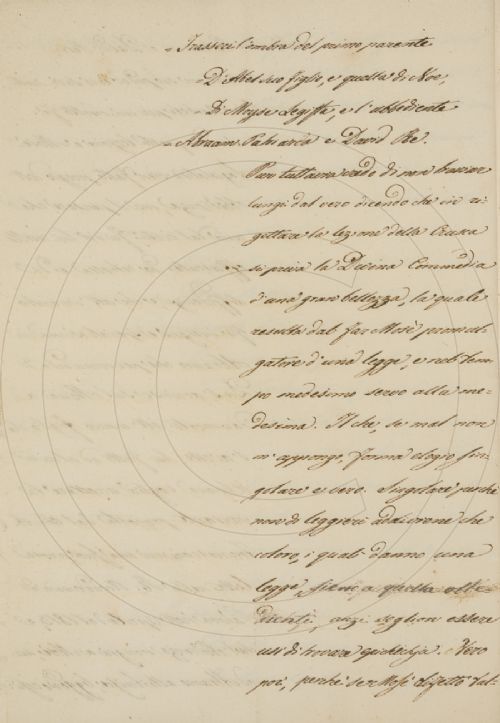 „ Trasseci l'ombra del primo parente
D'Abel suo figlio, e quella di Noe,
„ Di Moyse Legista, e l'ubbidiente
„ Abraam Patriarca e David Re.
Pur tuttavia vado di non
lungi dal vero dicendo che in ri-
gettare la lezione della Crusca
si priva la Divina Commedia
d'una gran bellezza, la quale
resulta dal far Mosè promul-
gatore d'una legge, e nel tem-
po medesimo servo alla me-
desima. Il che, se mal non
m'appongo, forma elogio sin-
golare e vero. Singolare perchè
non di leggieri addiviene che
coloro, i quali danno una
legge, siano a quella obbe-
dienti, anzi soglion essere
usi di trovare
poi, perchè se Mosè